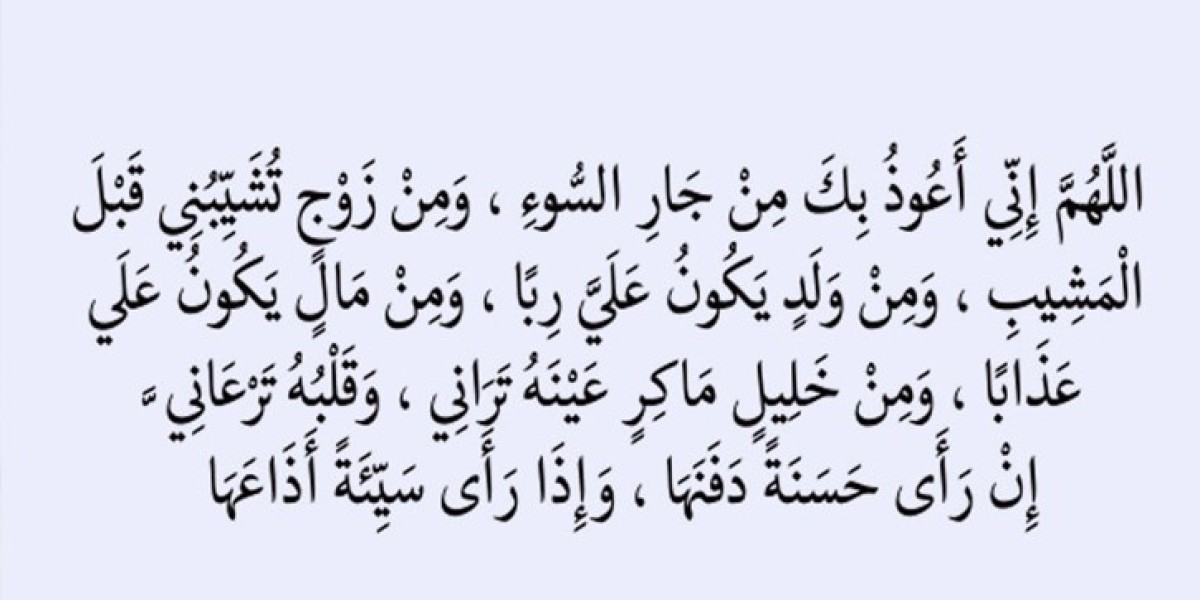 اللَّهُمَّ إِنِّي أَعُوذُ بِكَ مِنْ جَارِ السُّوءِ ، وَمِنْ زَوْجٍ تُشَيِّبُنِي قَبْلَ
الْمَشِيبِ ، وَمِنْ وَلَدٍ يَكُونُ عَلَيَّ رِبًا ، وَمِنْ مَالٍ يَكُونُ عَلَي
عَذَابًا ، وَمِنْ خَلِيلٍ مَاكِرٍ عَيْنَهُ تَرَانِي ، وَقَلْبُهُ تَرْعَانِي َّ
إِنْ رَأَى حَسَنَةً دَفَنَهَا ، وَإِذَا رَأَى سَيِّئَةً أَذَاعَهَا